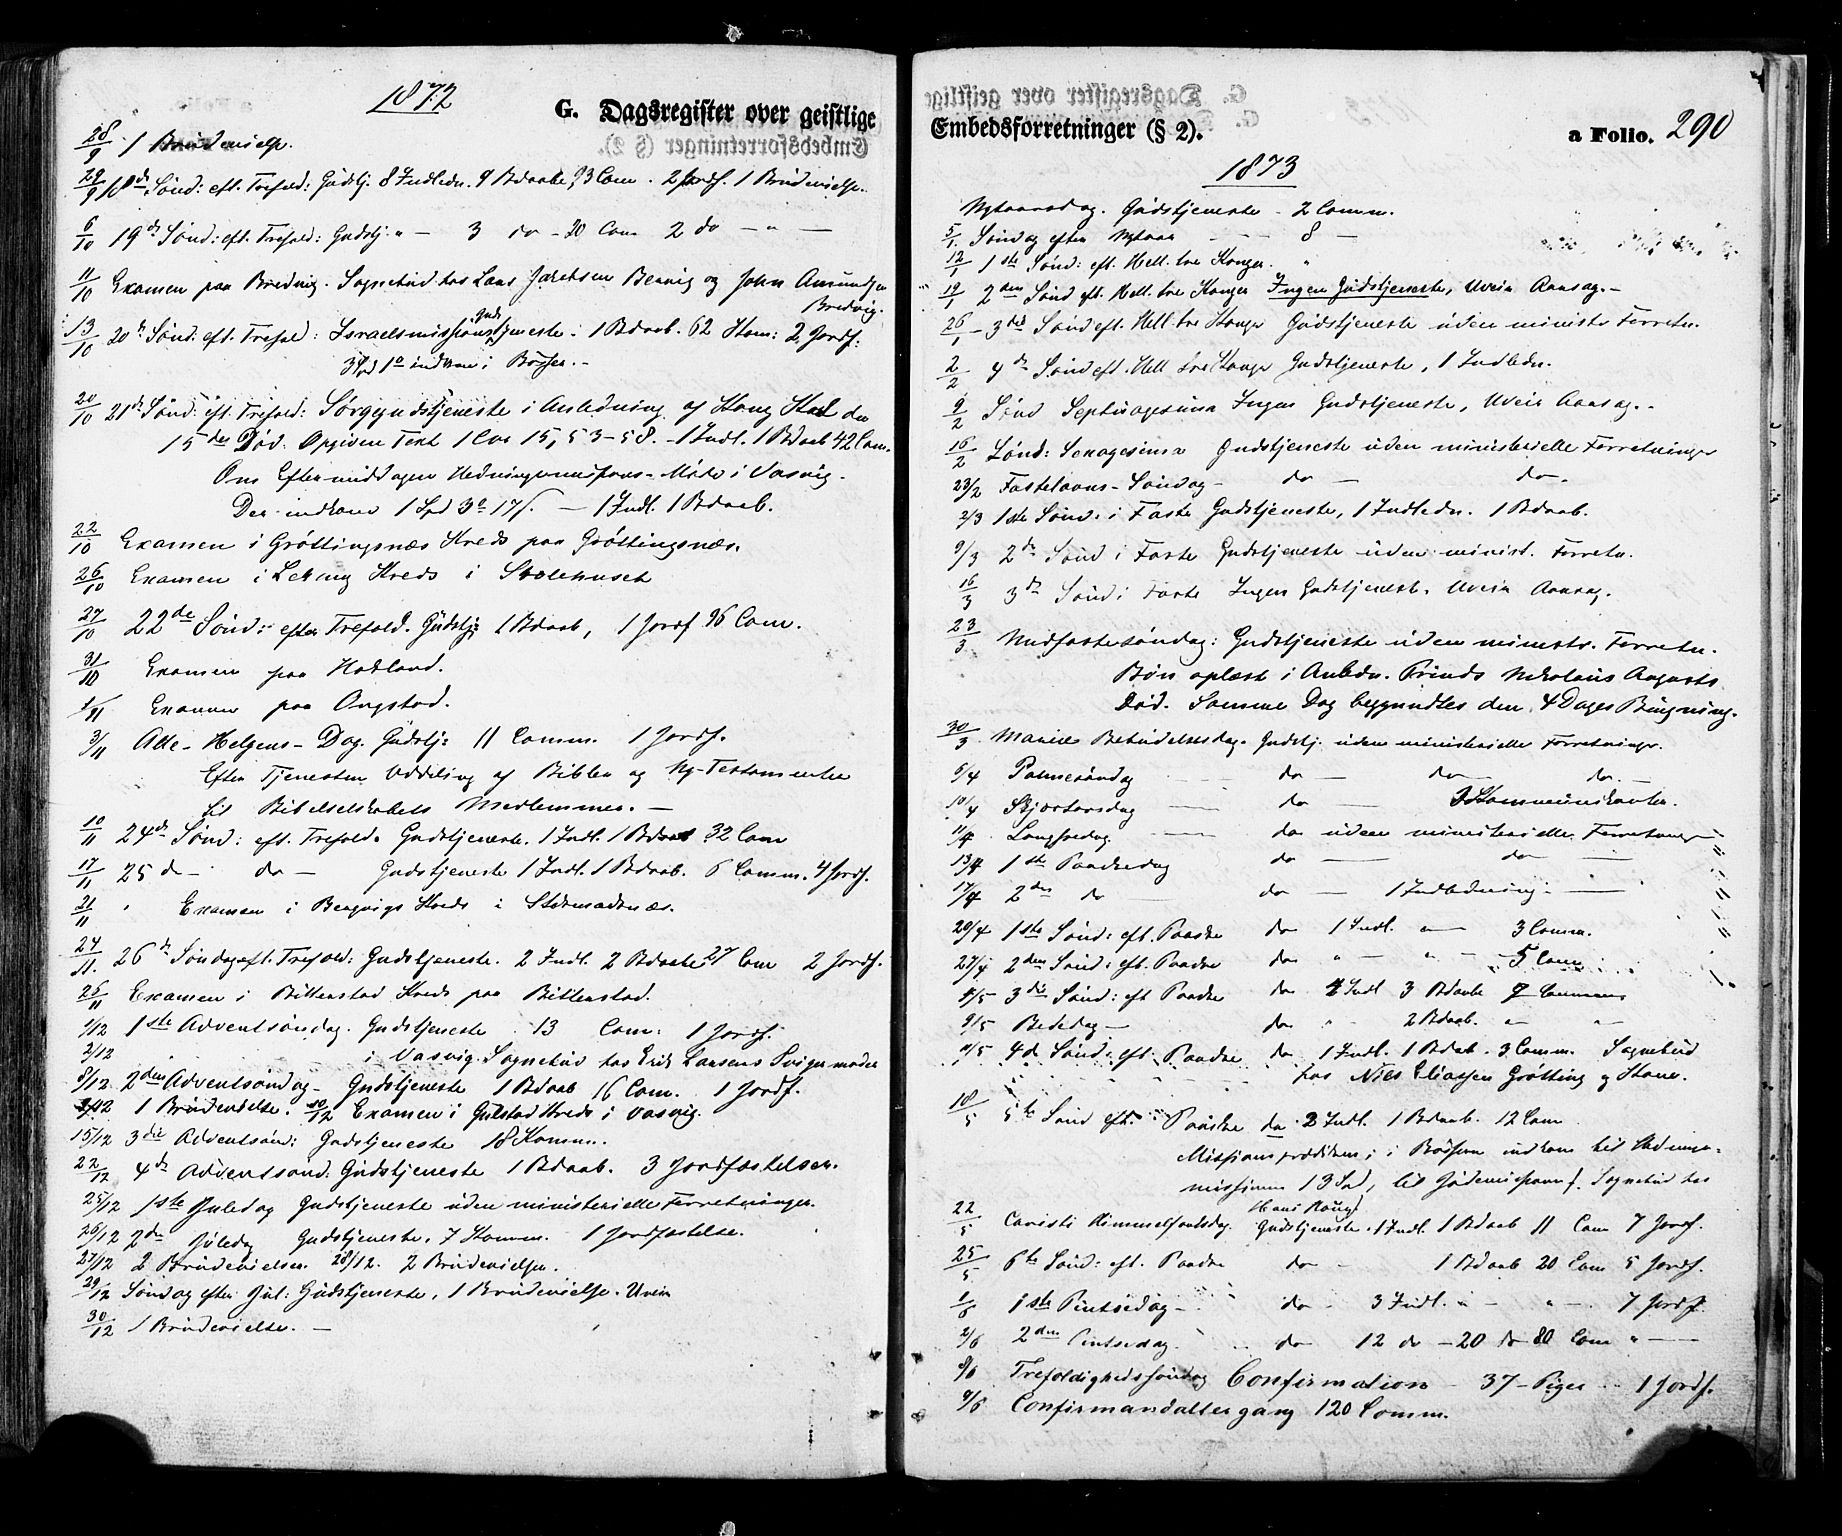 1872
G. Dagsregister over geistlige
28/9 1 Brudevielse.
29/9 18de Sønd: eft. Trefold: Gudstj. 8 Indledn. 9 Bdaab 93 Com. 2 Jordf. 1 Brudevielse.
6/10 19de Sønd: eft. Trefold: Gudstj. " — 3 do - 20 Com 2 do — " —
11/10 Examen paa Bredvig. Sognebud hos Lars Jacobsen Bervig og John Amundsen
Bredvig.
13/10 20de Sønd. eft. Trefold: Israelsmissionsgudstjeneste. 1 Bdaab. 62 Kom: 2 Jordf:
indkom i Bøssen. -
20/10 21de Sønd: eft. Trefold: Sørgegudstjeneste i Anledning af Kong Karl den
15des Død. Opgiven Text 1 Cor 15, 53-58. - 1 Indl. 1 Bdaab 42 Com.
Om Eftermiddagen Hedningemissions-Møde i Vasvig.
Der indkom 1 Spd 3 17 s. — 1 Indl. 1 Bdaab.
22/10 Examen i Grøttingsnæs Kreds paa Grøttingsnæs.
26/10 Examen i Kreds i Skolehuset
27/10 22de Sønd: efter Trefold. Gudstj: 1 Bdaab, 1 Jordf 96 Com.
31/10 Examen paa Hatland.
1/11 Examen paa Ongstad.
3/11 Alle-Helgens-Dag. Gudstj: 11 Comm. 1 Jordf.
Efter Tjenesten Uddeling af Bibler og Ny-Testamenter
til Bibelselskabets Medlemmer. —
10/11 24de Sønd: eft. Trefold. Gudstjeneste. 1 Indl. 1 Bdaab 32 Com
17/11 25 d - do - Gudstjeneste 1 Indl. 1 Bdaab. 6 Comm. 4 Jordf.
21/11 " Examen i Bergvigs Kreds i
24/11. 26de Søndag eft. Trefold: Gudstjeneste. 2 Indl. 2 Bdaab 27 Com 2 Jordf.
26/11 Examen i Bitterstad Kreds paa Bitterstad.
1/12 1ste Adventsøndag. Gudstjeneste 13 Com: 1 Jordf.
2/12 i Vasvig. Sognebud hos Erik Larsens Svigermoder
8/12 2den Adventsøndag - Gudstjeneste 1 Bdaab 16 Com. 1 Jordf.
/12 1 Brudevielse. 10/12 Examen i Gulstad Kreds i Vasvig.
15/12 3die Adventsønd: Gudstjeneste 18 Komm.
22/12 4de Adventsønd: Gudstjeneste 1 Bdaab. 3 Jordfæstelser.
25/12 1ste Juledag Gudstjeneste uden ministerielle Forretninger.
26/12 2den Juledag Gudstjeneste, 7 Komm. 1 Jordfæstelse.
27/12 2 Brudevielser. 28/12. 2 Brudevielser.
29/12 Søndag efter Jul: Gudstjeneste, 1 Brudevielse. Uveir
30/12 1 Brudevielse. —
Embedsforretninger (§ 2).
a Folio. 290
1873
Nytaarsdag. Gudstjeneste - 2 Comm.
5/1. Søndag efter Nytaar - - - 8 —
12/1 1ste Sønd: eft. Hell. tre Konger. "
19/1 2den Sønd eft. Hell. tre Konger Ingen Gudstjeneste, Uveir Aarsag. -
26/1 - 3die Sønd eft. Hell. tre Konger Gudstjeneste uden minist. Forretn.
2/2 4de Sønd eft. Hell tre Konger Gudstjeneste, 1 Indledn.
9/2 Sønd Septuagesima Ingen Gudstjeneste, Uveir Aarsag. -
16/2 Sønd: Sexagesima Gudstjeneste uden ministerielle Forretninger
23/2 Fastelavns-Søndag - do - do.
2/3 1ste Sønd: i Faste Gudstjeneste, 1 Indledn. 1 Bdaab.
9/3 2de Sønd i Faste Gudstjeneste uden minist. Forretn.
16/3 3de Sønd i Faste Ingen Gudstjenest. Uveir Aarsag.
23/3 Midfastesøndag: Gudstjeneste uden ministr. Forretn.
Bøn oplæst i Anledn. Prinds Nikolaus Augusts
Død. Samme Dag begyndtes den 4 Dages Ringning.
30/3 Mariæ Bebudelsesdag. Gudstj. uden ministerielle Forretninger.
6/4 Palmesøndag - do - do - do. -
10/4 Skjærtorsdag — do — 3 Kommunikanter.
11/4 Langfredag. do uden ministerielle Forretninger
13/4 1ste Paaskedag do — do —
17/4 2den do — do — 1 Indledning. —
20/4 1ste Sønd: eft. Paaske do 1 Indl. " — 3 Comm.
27/4 2den Sønd: eft. Paaske do " — " — 5 Com
4/5 3die Sønd: eft Paaske do 4 Indl 3 Bdaab 7
9/5 Bededag — do " - 2 Bdaab. " "
11/5 4de Sønd: eft. Paaske do 1 Indl. 1 Bdaab. 3 Comm. Sognebud
hos Niels Eliassen Grøtting og Kone.
18/5 5te Sønd eft. Paaske do 2 Indl. 1 Bdaab. 12 Com
Missionsprædiken; i Bøssen indkom til Hednings-
missionen 13 , til Jødemissionen f. Sognebud hos
Hans
22/5 Christi Himmelfartsdag. Gudstjeneste. 1 Indl. 1 Bdaab 11 Com 7 Jordf.
25/5 6te Sønd: eft. Paaske do - 1 Bdaab 20 Com 5 Jordf.
1/6 1ste Pintsedag - do - 3 Indl. " - " - 7 Jordf
2/6 2den Pintsedag. do - 12 do - 20 do 80 Com " —
8/6 Trefoldighedssøndag Confirmation - 37 - Piger - 1 Jordf.
9/6 Confirmandaltergang 120 Comm.